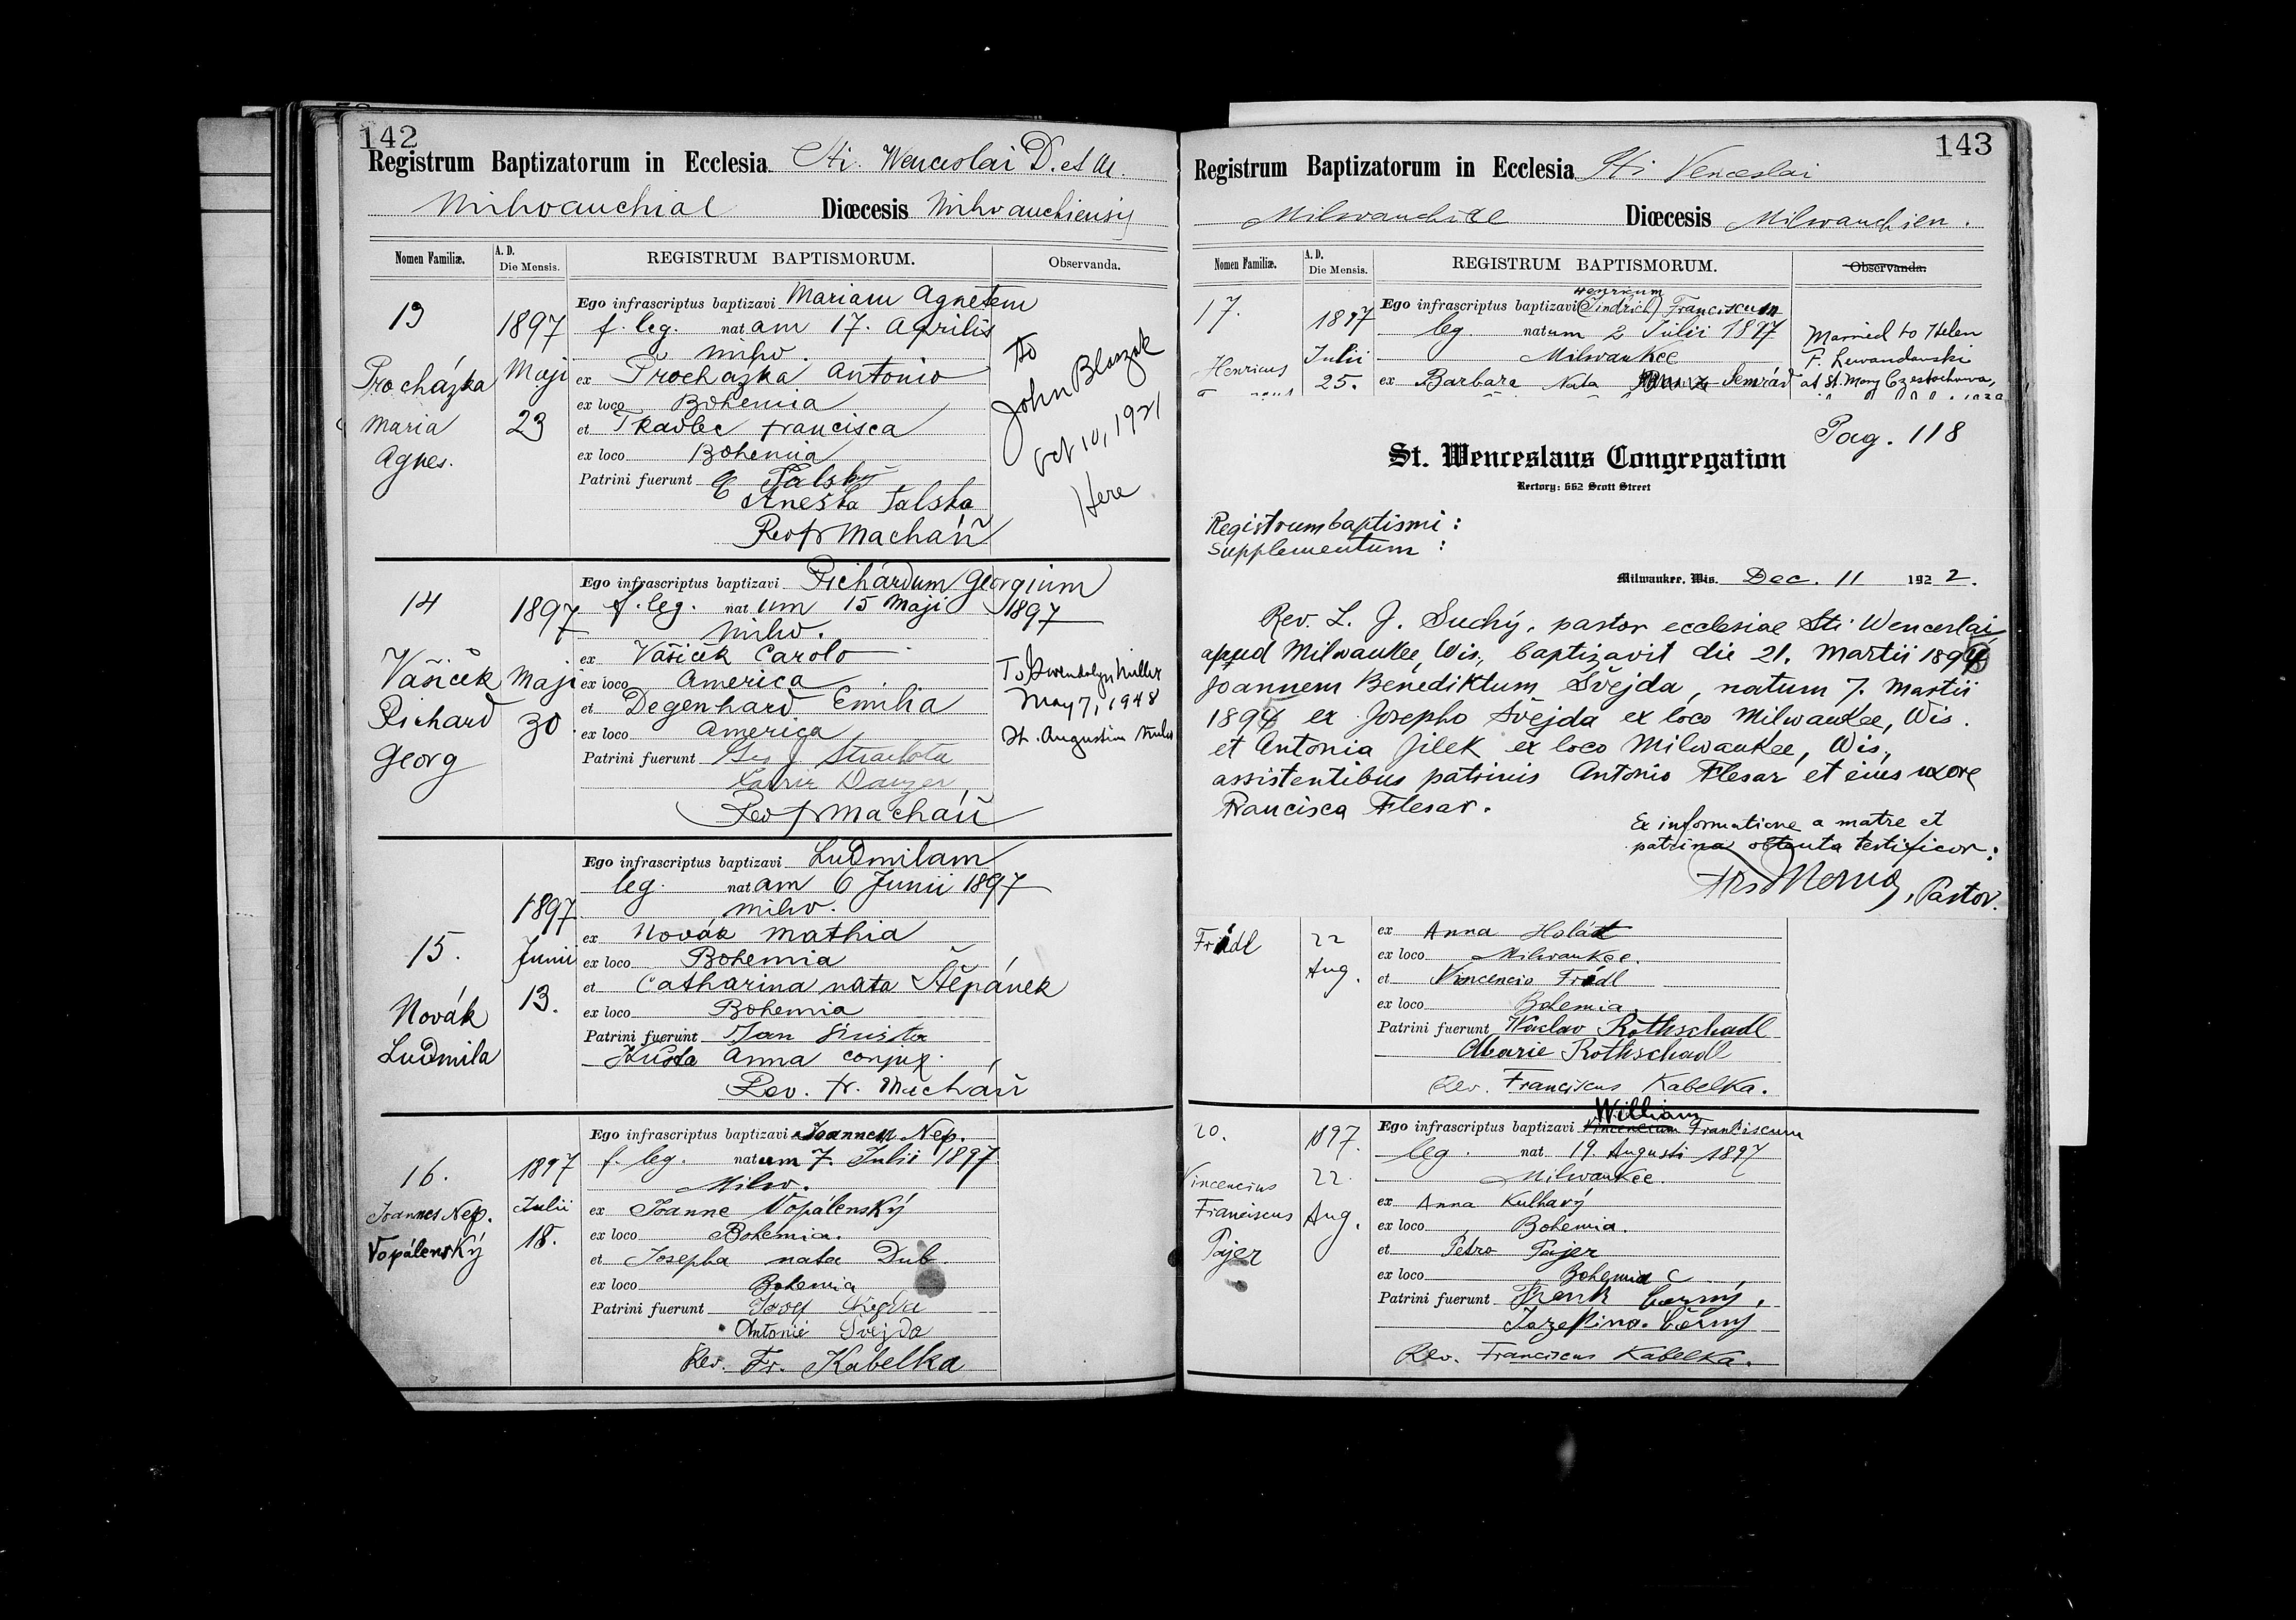 142
Registrum Baptizatorum in Ecclesia Sti. Wenceslai D. et M.
Milwauchiae Diœcesis Milwauchiensis
Nomen Familiæ. A. D. Die Mensis. REGISTRUM BAPTISMORUM. Observanda.
13
Procházka
Maria
Agnes.
1897
Maji
23
Ego infrascriptus baptizavi Mariam Agnetem
f. leg. natam 17. Aprilis
Milw.
ex Procházka Antonio
ex loco Bohemia
et Tkadlec Francisca
ex loco Bohemia
Patrini fuerunt Talský
Aneška Talska
Rev Fr Macháň
To
John Blaszak
Oct 10, 1921
Here
14
Vašiček
Richard
Georg
1897
Maji
30
Ego infrascriptus baptizavi Richardum Georgium
f. leg. natum 15 Maji 1897
Milw.
ex Vašiček Carolo
ex loco America
et Degenhard Emilia
ex loco America
Patrini fuerunt Geo J. Strachota
Danzer
Rev Fr Macháň
To Gwendolyn Miller
May 7, 1948
St. Augustin
15.
Novák
Ludmila
1897
Junii
13.
Ego infrascriptus baptizavi Ludmilam
leg. natam 6 Junii 1897
Milw.
ex Novák Mathia
ex loco Bohemia
et Catharina nata Štěpánek
ex loco Bohemia
Patrini fuerunt Jan
Anna conjux.
Rev. Fr. Macháň
16.
Joannes Nep.
Vopálenský
1897
Julii
18.
Ego infrascriptus baptizavi Joannem Nep.
f. leg. natum 7. Julii 1897
Milw.
ex Joanne Vopálenský
ex loco Bohemia.
et Josepha nata Dub.
ex loco Bohemia
Patrini fuerunt Josef Švejda
Antonie Švejda
Rev. Fr. Kabelka
143
Registrum Baptizatorum in Ecclesia Sti Venceslai
Milwauchiae Diœcesis Milwauchien.
Nomen Familiæ. A. D. Die Mensis. REGISTRUM BAPTISMORUM. Observanda.
17.
Henricus
1897
Julii
25.
Henricum
Ego infrascriptus baptizavi (Jindřich) Franciscum
leg. natum 2 Julii 1897
Milwaukee
ex Barbara Nata Semrád
Married to Helen
F. Lewandowski
at St. Mary Czestochowa,
Pag. 118
St. Wenceslaus Congregation
Rectory: 662 Scott Street
Registrum baptismi :
supplementum :
Milwaukee, Wis. Dec. 11 1922.
Rev. L. J. Suchý, pastor ecclesiae Sti. Wenceslai
apud Milwaukee, Wis., baptizavit die 21. Martii 1894
Joannem Benediktum Švejda, natum 7. Martii
1894 ex Josepho Švejda ex loco Milwaukee, Wis.
et Antonia Jilek ex loco Milwaukee, Wis.,
assistentibus patrinis Antonio Flesar et eius uxore
Francisca Flesar.
Ex informatione a matre et
patrina obtenta testificor:
Pastor.
Frídl
22
Aug.
ex Anna Holát
ex loco Milwaukee.
et Vincencio Frídl
ex loco Bohemia
Patrini fuerunt Václav Rothschadl
Marie Rothschadl
Rev. Franciscus Kabelka.
20.
Vincencius
Franciscus
Pajer
1897.
22.
Aug.
William
Ego infrascriptus baptizavi Vincencium Franciscum
leg. nat 19. Augusti 1897
Milwaukee.
ex Anna Kulhavý
ex loco Bohemia.
et Petro Pajer
ex loco Bohemia
Patrini fuerunt Frank Černý,
Jozefina Černý
Rev. Franciscus Kabelka.